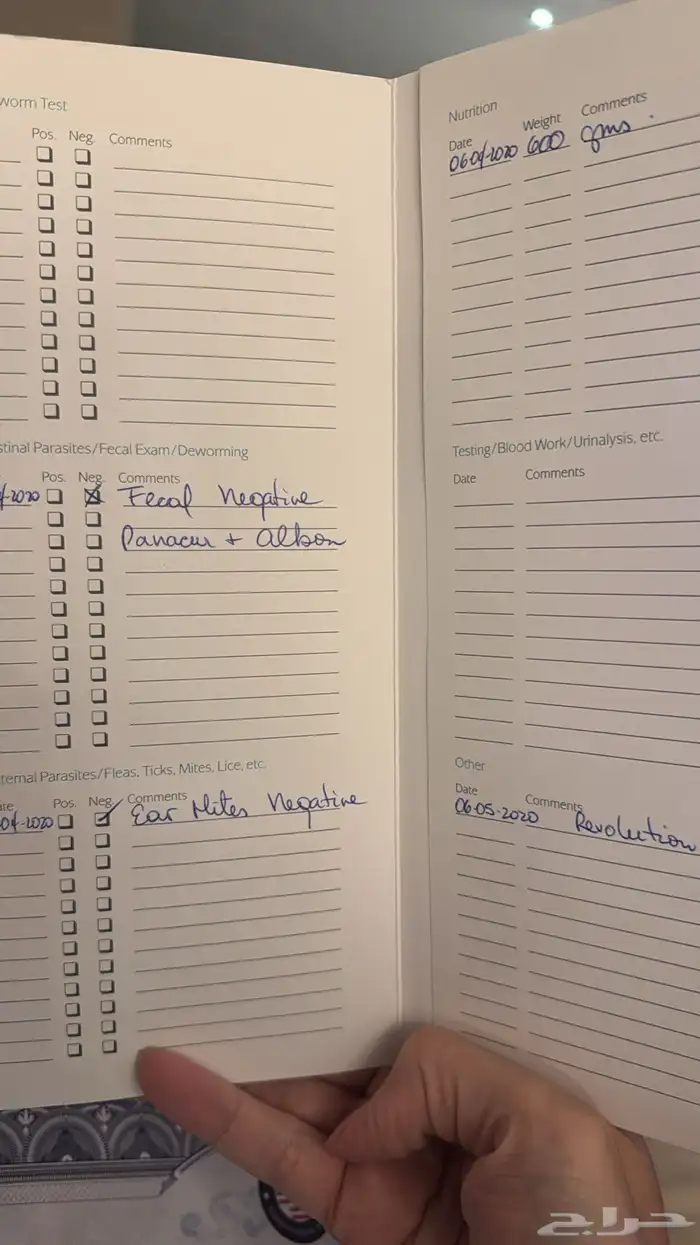 worm Test
Pos. Neg. Comments
stinal Parasites/Fecal Exam/Deworming
Pos. Neg. Comments
-2020 Fecal Negative
Panacur + Albon
ternal Parasites/Fleas, Ticks, Mites, Lice, etc.
ate Pos. Neg. Comments
04-2020 Ear Mites Negative
Nutrition
Date Weight Comments
06-04-2020 600 gms.
Testing/Blood Work/Urinalysis, etc.
Date Comments
Other
Date Comments
06-05-2020 Revolution
حراج